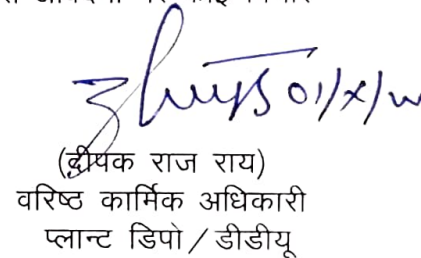 01/x/
(दीपक राज राय)
वरिष्ठ कार्मिक अधिकारी
प्लान्ट डिपो / डीडीयू